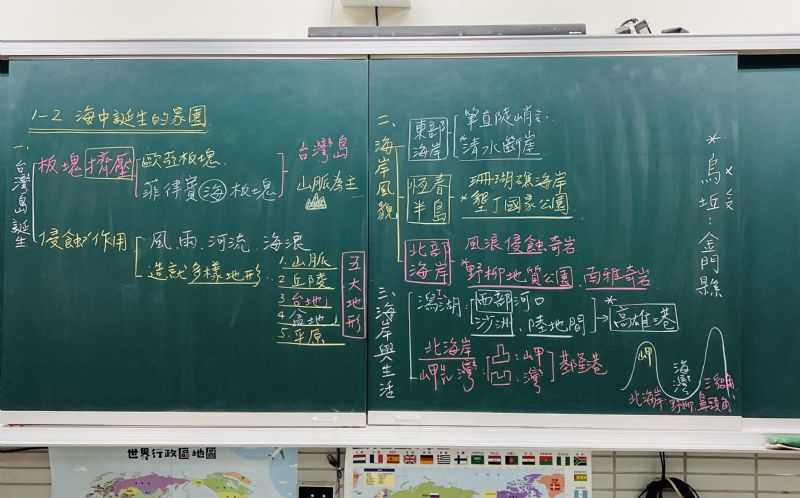 1-2 海中誕生的家園
一、台灣島誕生
板塊擠壓
歐亞板塊
菲律賓海板塊
台灣島
山脈為主
侵蝕作用
風、雨、河流、海浪
造就多樣地形
1. 山脈
2. 丘陵
3 台地
4 盆地
5. 平原
五大地形
二、海岸風貌
東部海岸
筆直陡峭
*清水斷崖
恆春半島
珊瑚礁海岸
*墾丁國家公園
北部海岸
風浪侵蝕奇岩
*野柳地質公園、南雅奇岩
三、海岸與生活
潟湖:
西部河口
沙洲、陸地間
→ *高雄港
北海岸
岬灣
凸:岬
凹:灣
基隆港
*烏坵:金門縣
岬
海灣
三貂角
北海岸:野柳、鼻頭角
世界行政區地圖